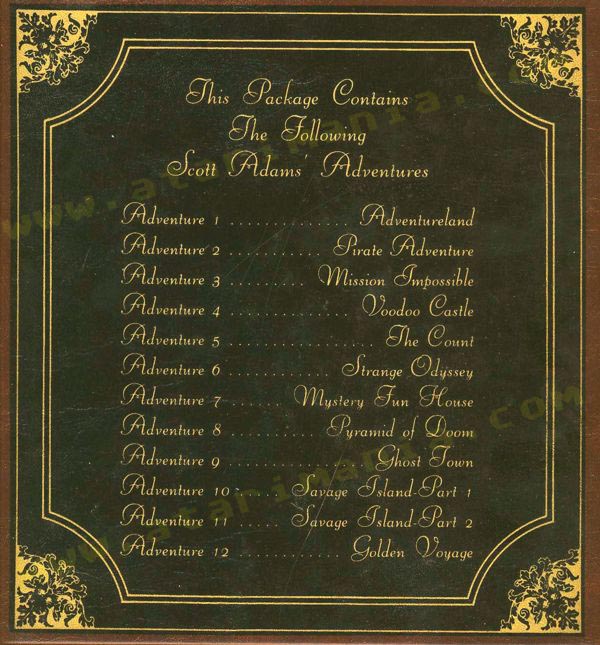 This Package Contains
The Following
Scott Adams' Adventures
Adventure 1 .............. Adventureland
Adventure 2 ............ Pirate Adventure
Adventure 3 ......... Mission Impossible
Adventure 4 .............. Voodoo Castle
Adventure 5 ................. The Count
Adventure 6 ............ Strange Odyssey
Adventure 7 ...... Mystery Fun House
Adventure 8 .......... Pyramid of Doom
Adventure 9 ................ Ghost Town
Adventure 10 ...... Savage Island-Part 1
Adventure 11 ..... Savage Island-Part 2
Adventure 12 ............ Golden Voyage
www.atarimania.com
www.atarimania.com